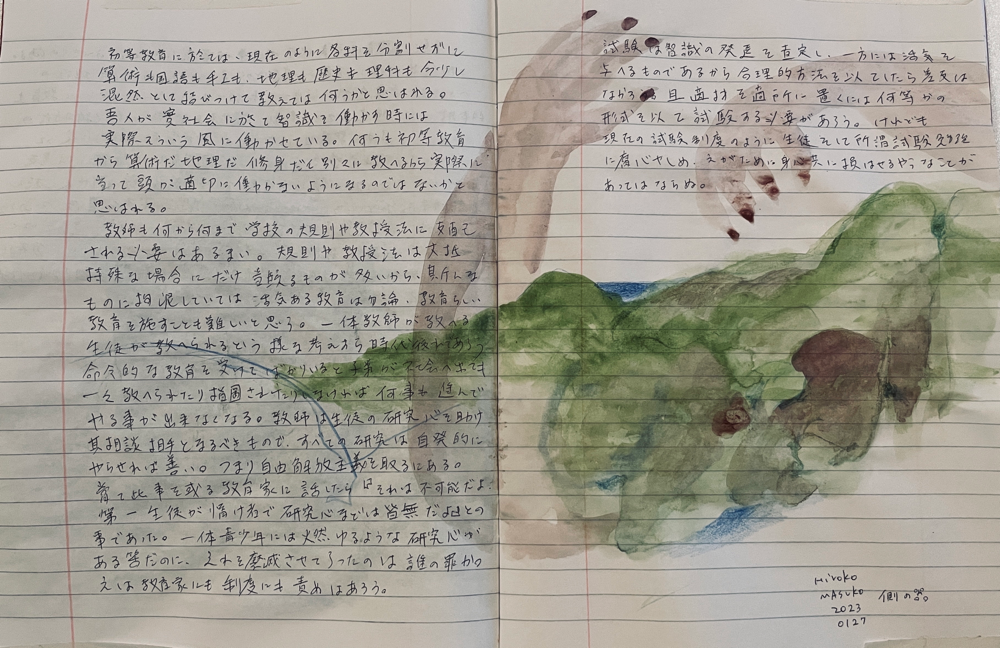 初等教育に於ては、現在のように各科を分割せずに
算術も国語も手工も、地理も歴史も理科も今少し
混然として結びつけて教えては何うかと思はれる。
吾人が実社会に於て智識を働かす時には
実際そういう風に働かせている。何うも初等教育
から算術だ地理だ修身だと別々に教へるから実際に
当って頭が適切に働かないようになるのではないかと
思はれる。
教師も何から何まで学校の規則や教授法に支配
される必要はあるまい。規則や教授法は大抵
特殊な場合にだけ当嵌るものが多いから、其んな
ものに拘泥していては活気ある教育は勿論、教育らしい
教育を施すことも難しいと思う。一体教師が教へる
生徒が教へられるという様な考えから時代依れであらう
命令的な教育を受けてばかりいると子供が社会へ出ても
一々教へられたり指図されたりしなければ何事も進んで
やる事が出来なくなる。教師は生徒の研究心を助け
其相談相手となるべきもので、すべての研究は自発的に
やらせれば善い。つまり自由解放主義を取るにある。
嘗て此事を或る教育家に話したら『それは不可能だよ、
第一生徒が惰け者で研究心などは皆無だよ』との
事であった。一体青少年には火然ゆるような研究心が
ある筈だのに、それを磨滅させて了ったのは誰の罪か
それは教育家にも制度にも責めはあろう。
試験は智識の発達を査定し、一方には活気を
与へるものであるから合理的方法を以てしたら差支は
なかろう。且適材を適所に置くには何等かの
形式を以て試験する必要があろう。けれども
現在の試験制度のように生徒をして所謂試験勉強
に腐心せしめ、それがために身心共に損はせるやうなことが
あってはならぬ。
Hiroko
Masuko
2023
0127
側の器。